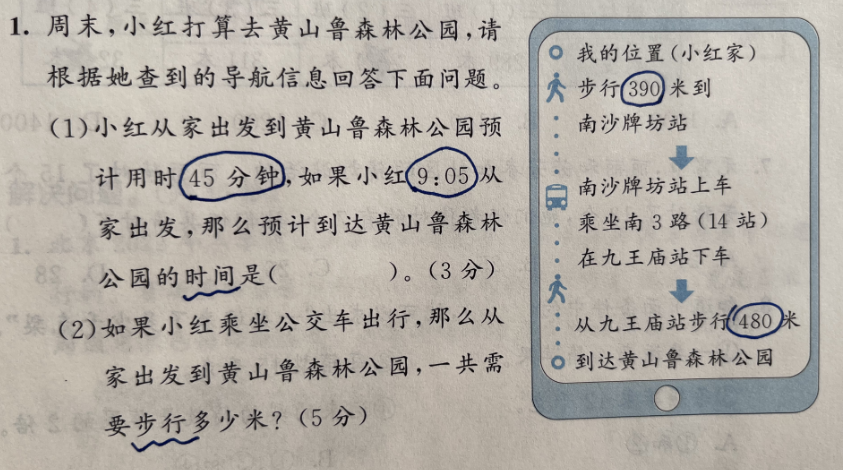 1. 周末,小红打算去黄山鲁森林公园,请
根据她查到的导航信息回答下面问题。
(1)小红从家出发到黄山鲁森林公园预
计用时45分钟,如果小红9:05从
家出发,那么预计到达黄山鲁森林
公园的时间是(    )。(3分)
(2)如果小红乘坐公交车出行,那么从
家出发到黄山鲁森林公园,一共需
要步行多少米?(5分)
我的位置(小红家)
步行390米到
南沙牌坊站
南沙牌坊站上车
乘坐南3路(14站)
在九王庙站下车
从九王庙站步行480米
到达黄山鲁森林公园